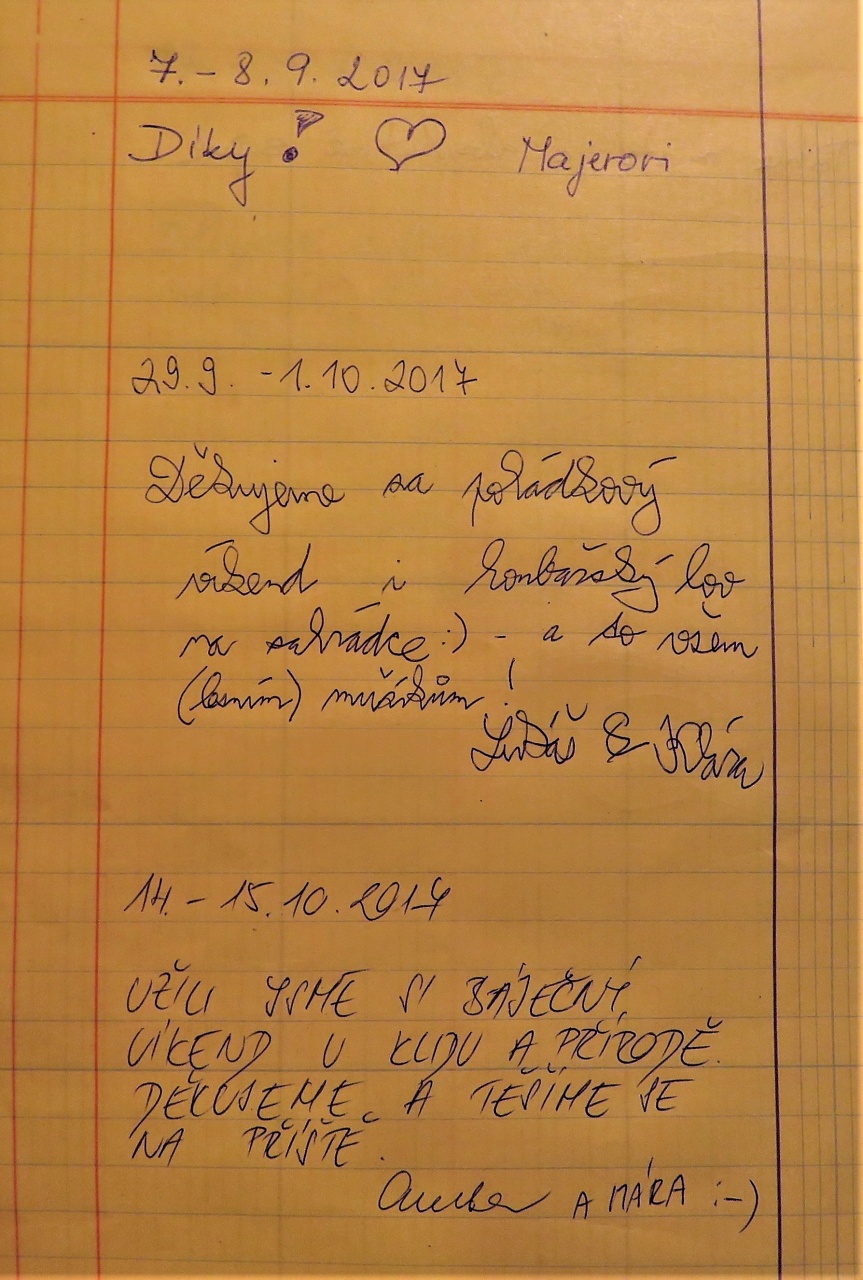 7. - 8. 9. 2017
Díky! ♡ Majerovi
29.9. - 1.10.2017
Děkujeme za pohádkový
víkend i houbařský lov
na zahrádce :) - a to všem
(lesním) mužíkům!
Lukáš & Klára
14. - 15.10.2017
UŽILI JSME SI BÁJEČNÝ
VÍKEND V KLIDU A PŘÍRODĚ.
DĚKUJEME A TĚŠÍME SE
NA PŘÍŠTĚ.
A MÁRA :-)